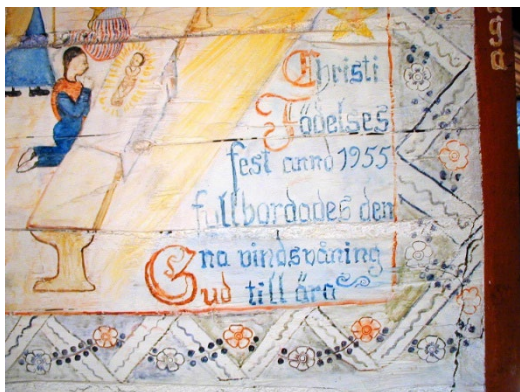 Christi
Födelses
fest anno 1955
fullbordades den
na vindsvåning
Gud till ära